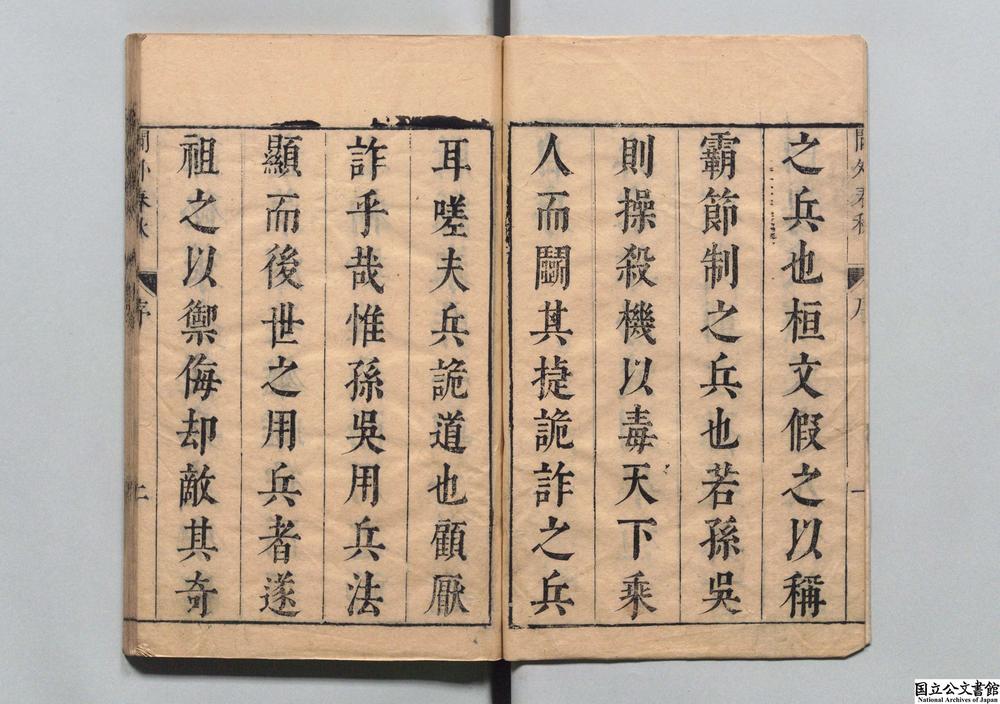 之兵也桓文假之以稱
霸節制之兵也若孫吳
則操殺機以毒天下乘
人而鬭其捷詭詐之兵
耳嗟夫兵詭道也顧厭
詐乎哉惟孫吳用兵法
顯而後世之用兵者遂
祖之以禦侮却敵其奇
春秋
序
国立公文書館
National Archives of Japan